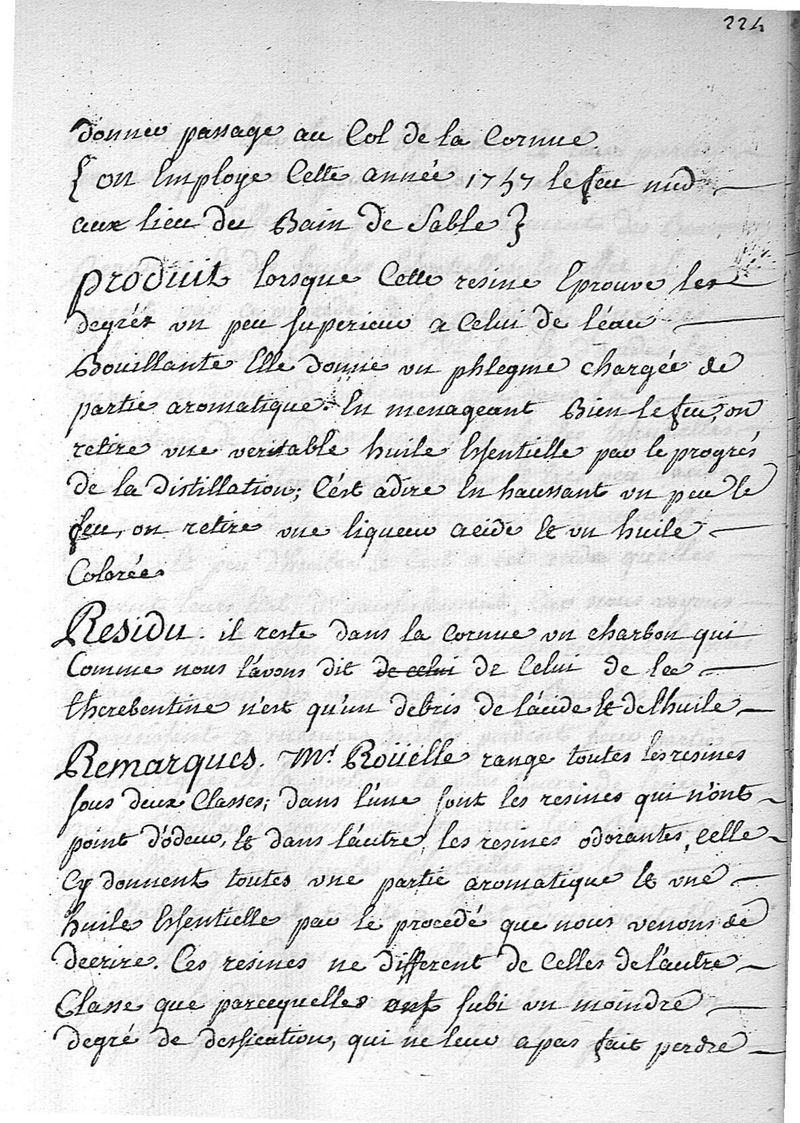 224
donner passage au Col de la Cornue.
{ on Employe Cette année 1747 le feu nud
aux lieu du Bain de Sable }
produit lorsque Cette resine Eprouve les
degrés un peu superieur a Celui de l'eau
Bouillante Elle donne un phlegme chargée de
partie aromatique. En menageant Bien le feu, on
retire une veritable huile Essentielle par le progrés
de la distillation; C'est adire En haussant un peu le
feu, on retire une liqueur acide et un huile
Colorée.
Residu. il reste dans la Cornue un charbon qui
Comme nous l'avons dit de celui de Celui de la
therebentine n'est qu'un debris de l'acide et de l'huile
Remarques. Mr. Roüelle range toutes les resines
sous deux Classes; dans l'une sont les resines qui n'ont
point d'odeur, et dans l'autre, les resines odorantes, celle
Cy donnent toutes une partie aromatique et une
huile Essentielle par le procedé que nous venons de
decrire. Ces resines ne different de Celles de l'autre
Classe que parcequelles ont subi un moindre
degré de dessication, qui ne leur a pas fait perdre